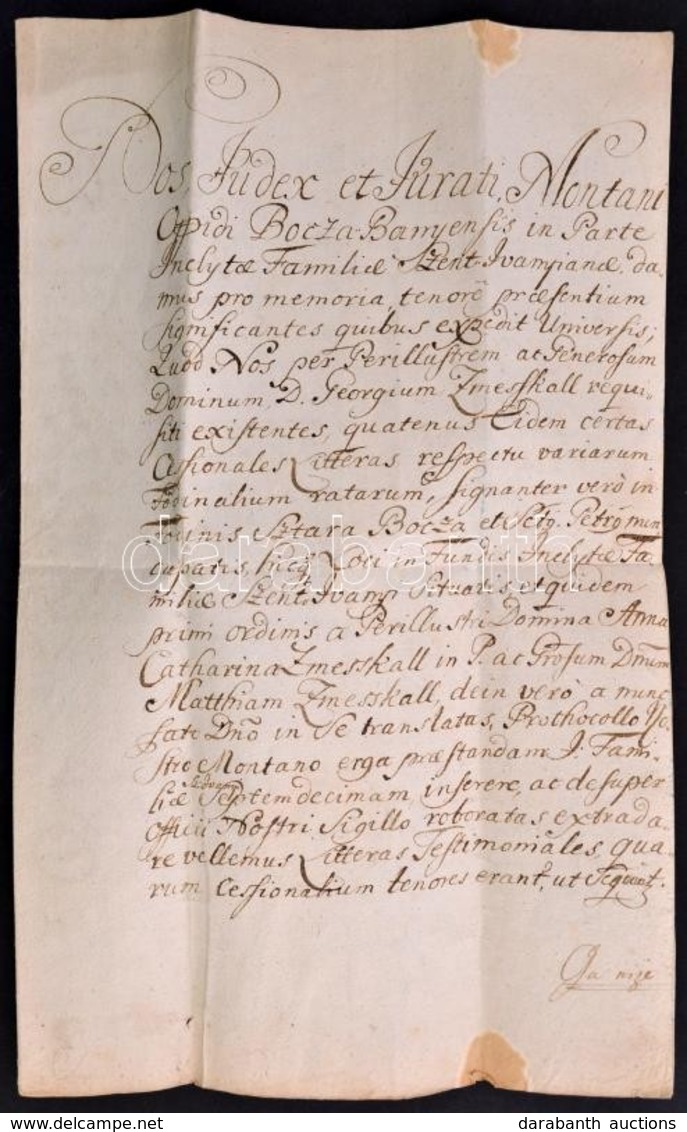 Nos Judex et Jurati, Montani
Oppidi Bocza-Banyensis in Parte
Inclytæ Familiæ Szent-Ivanyianæ da-
mus pro memoria, tenorẽ præsentium
significantes quibus expedit Universis;
Quod Nos per Perillustrem ac Generosum
Dominum, D. Georgium Zmesskall requi-
siti existentes, quatenus Eidem certas
Cessionales Litteras respectu variarum
Fodinalium ratarum, signanter verò in
Fodinis Sztara Bocza et Petrõ nun
cupatis, in Fundis Inclytæ Fa-
miliæ Szent-Ivanyi situatis, et quidem
primi ordinis a Perillustri Domina Anna
Catharina Zmesskall in P. ac Grõsum Dnũm
Matthiam Zmesskall, dein verò a nunc
fato Dnõ in Se translatas, Prothocollo No-
stro Montano erga præstandam J. Fami-
liæ Septemdecimam inserere, ac desuper
Officii Nostri Sigillo roboratas extrada-
re vellemus Litteras Testimoniales, qua-
rum Cessionalium tenores erant, ut Sequũt.
niže
databanth
darabanth auctions
www.delcampe.net